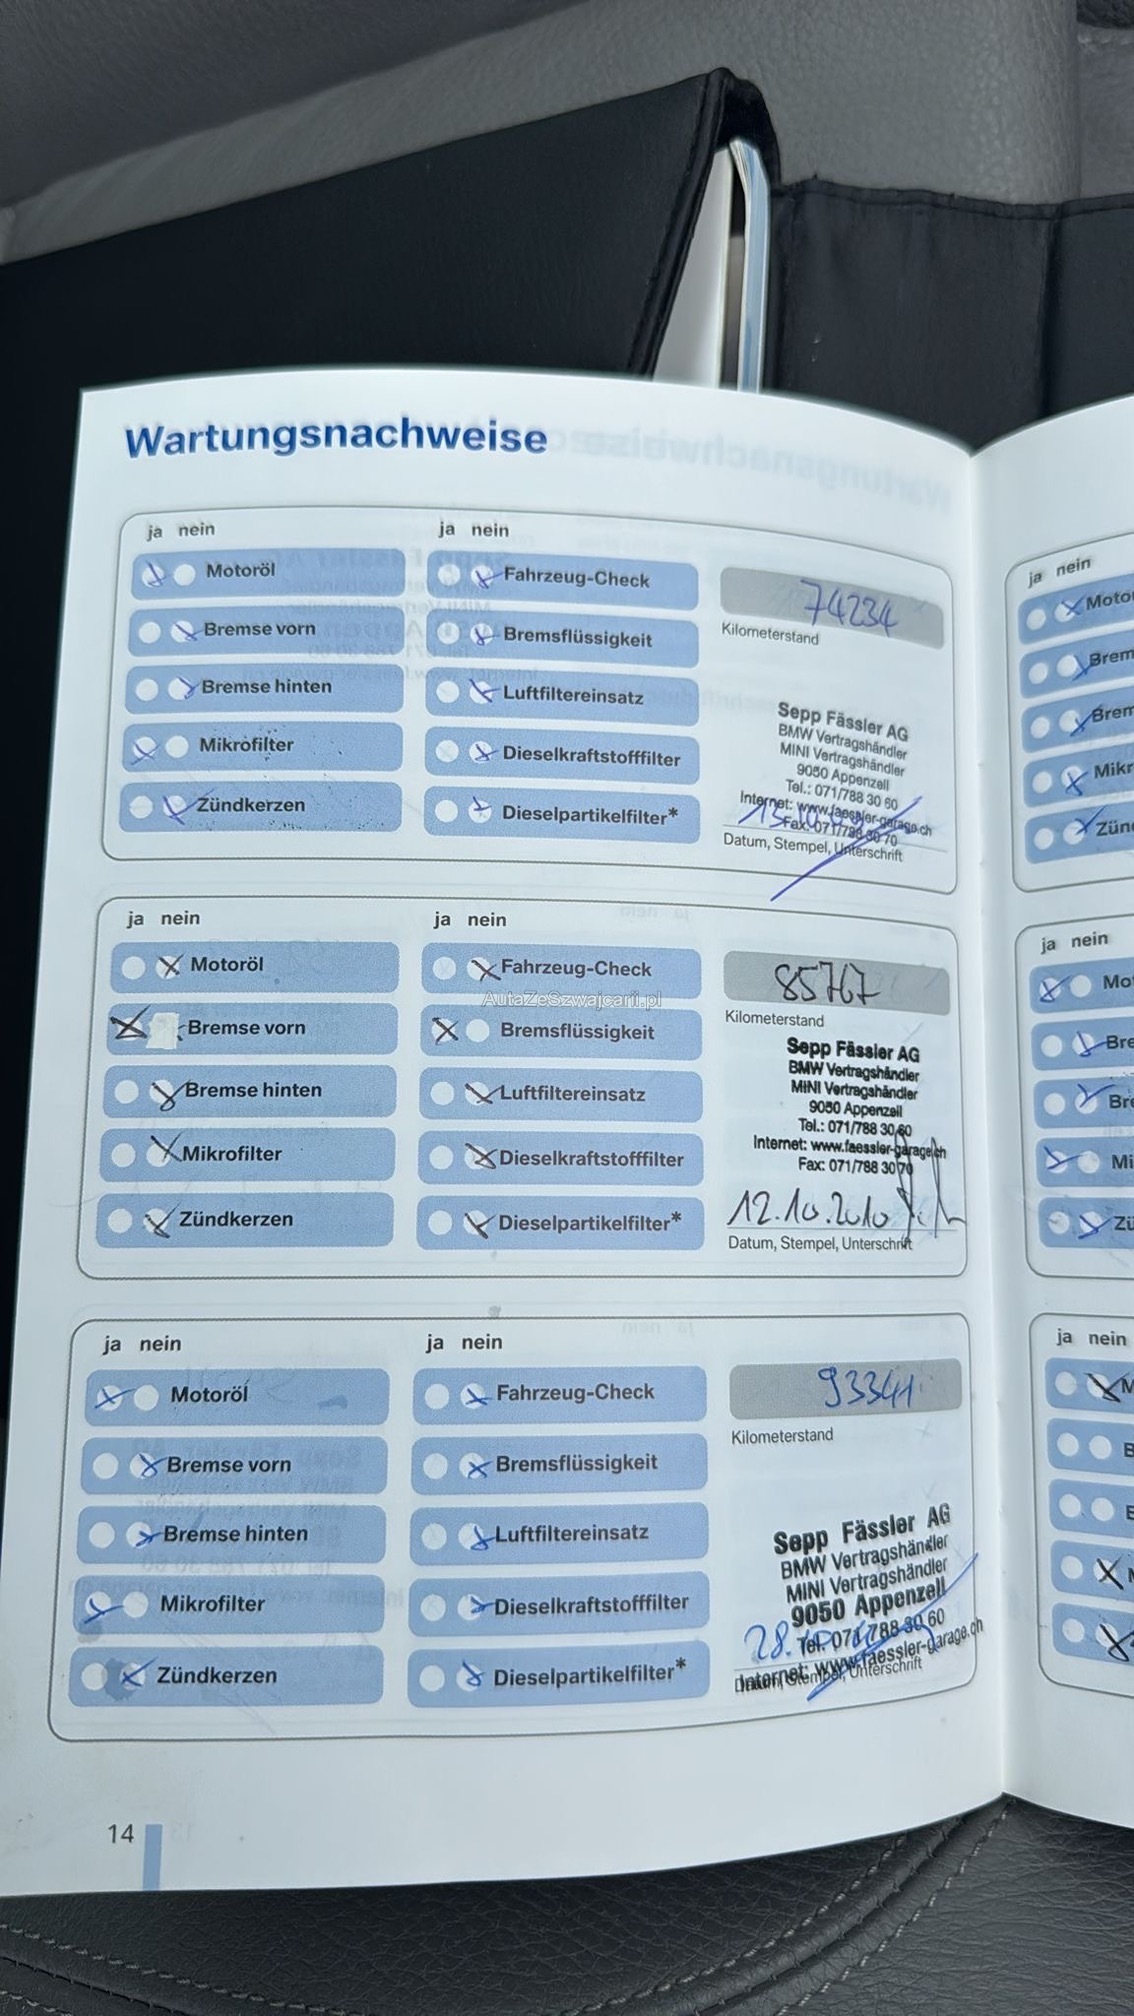 Wartungsnachweise
ja nein
ja nein
Motoröl
Fahrzeug-Check
74234
Kilometerstand
Bremse vorn
Bremsflüssigkeit
Bremse hinten
Luftfiltereinsatz
Mikrofilter
Dieselkraftstofffilter
Zündkerzen
Dieselpartikelfilter*
Sepp Fässler AG
BMW Vertragshändler
MINI Vertragshändler
9050 Appenzell
Tel.: 071/788 30 60
Internet: www.faessler-garage.ch
Fax: 071/788 30 70
Datum, Stempel, Unterschrift
ja nein
ja nein
Motoröl
Fahrzeug-Check
85767
Kilometerstand
AutaZeSzwajcarii.pl
Bremse vorn
Bremsflüssigkeit
Bremse hinten
Luftfiltereinsatz
Mikrofilter
Dieselkraftstofffilter
Zündkerzen
Dieselpartikelfilter*
Sepp Fässler AG
BMW Vertragshändler
MINI Vertragshändler
9050 Appenzell
Tel.: 071/788 30 60
Internet: www.faessler-garage.ch
Fax: 071/788 30 70
12.10.2010
Datum, Stempel, Unterschrift
ja nein
ja nein
Motoröl
Fahrzeug-Check
93341
Kilometerstand
Bremse vorn
Bremsflüssigkeit
Bremse hinten
Luftfiltereinsatz
Mikrofilter
Dieselkraftstofffilter
Zündkerzen
Dieselpartikelfilter*
Sepp Fässler AG
BMW Vertragshändler
MINI Vertragshändler
9050 Appenzell
Tel. 071/788 30 60
Internet: www.faessler-garage.ch
Datum, Stempel, Unterschrift
14
ja nein
Moto
Brem
Brem
Mikr
Zün
ja nein
Mo
Bre
Bre
Mi
Zü
ja nein
M
B